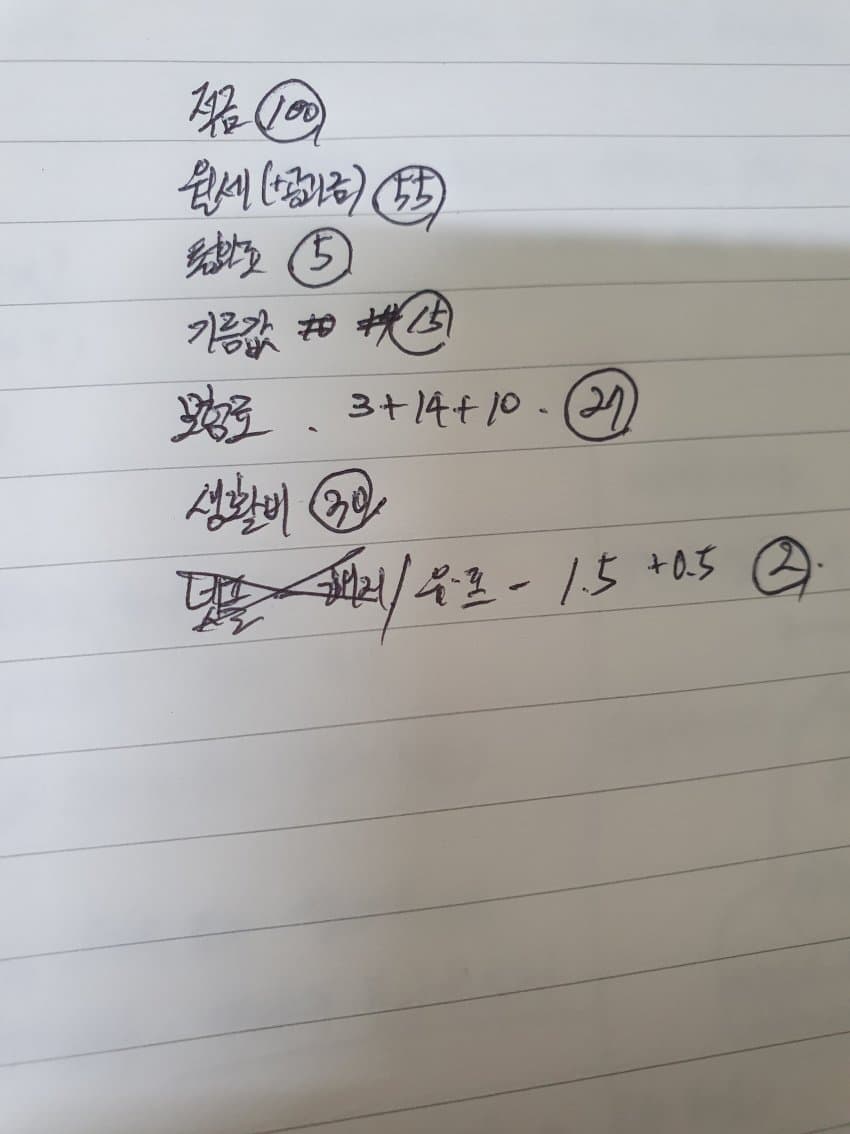 적금 100
월세 (+공과금) 55
통화료 5
기름값 15
보험료 . 3+14+10 . 27
생활비 30
넷플 / 유·프 - 1.5 +0.5 2.